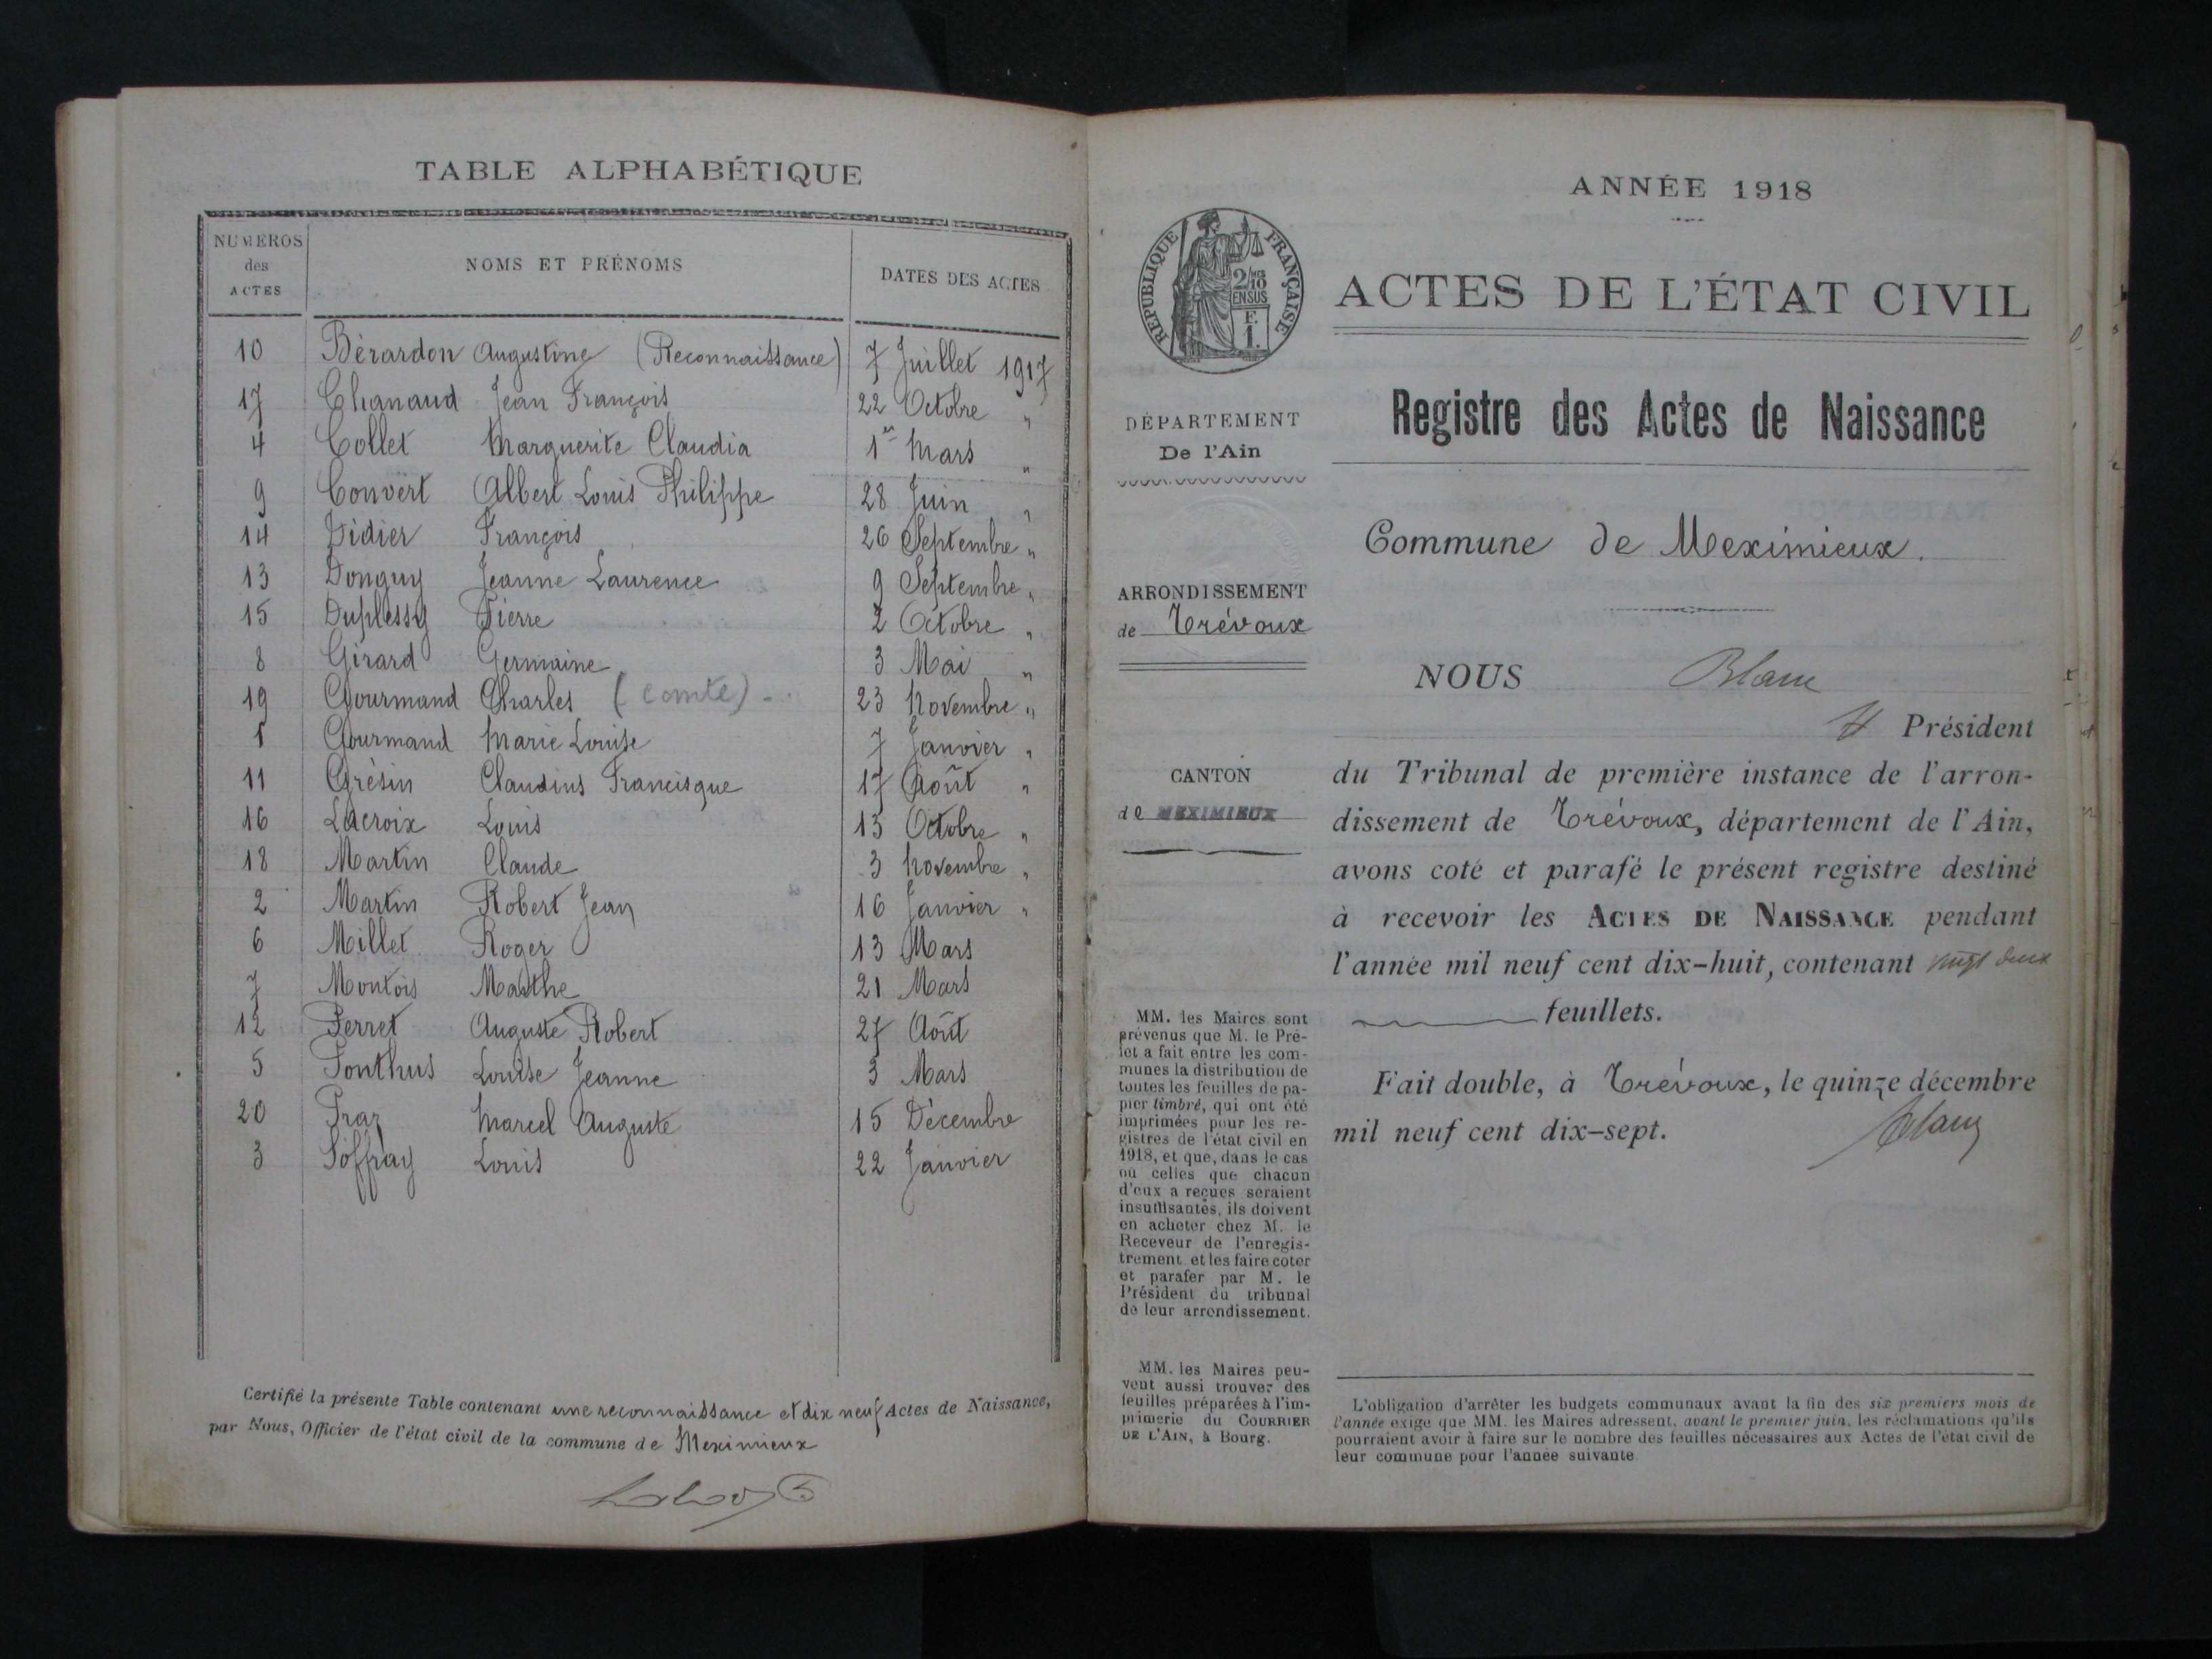 TABLE ALPHABÉTIQUE
NUMÉROS des ACTES NOMS ET PRÉNOMS DATES DES ACTES
10 Bérardon Augustine (Reconnaissance) 7 Juillet 1917
17 Chanaud Jean François 22 Octobre "
4 Collet Marguerite Claudia 1er Mars "
9 Convert Albert Louis Philippe 28 Juin "
14 Didier François 26 Septembre "
13 Donguy Jeanne Laurence 9 Septembre "
15 Duplessy Pierre 2 Octobre "
8 Girard Germaine 3 Mai "
19 Gourmand Charles (comte) 23 Novembre "
1 Gourmand Marie Louise 7 Janvier "
11 Grésin Claudius Francisque 17 Août "
16 Lacroix Louis 15 Octobre "
18 Martin Claude 3 Novembre "
2 Martin Robert Jean 16 Janvier "
6 Millet Roger 13 Mars
7 Montois Marthe 21 Mars
12 Perret Auguste Robert 27 Août
5 Ponthus Louise Jeanne 3 Mars
20 Praz Marcel Auguste 15 Décembre
3 Soffray Louis 22 Janvier
Certifié la présente Table contenant une reconnaissance et dix neuf Actes de Naissance,
par Nous, Officier de l'état civil de la commune de Meximieux
ANNÉE 1918
RÉPUBLIQUE FRANÇAISE
2/10 MES
EN SUS
F.
1.
ACTES DE L'ÉTAT CIVIL
Registre des Actes de Naissance
DÉPARTEMENT
De l'Ain
ARRONDISSEMENT
de Trévoux
CANTON
de MEXIMIEUX
MM. les Maires sont
prévenus que M. le Pré-
fet a fait entre les com-
munes la distribution de
toutes les feuilles de pa-
pier timbré, qui ont été
imprimées pour les re-
gistres de l'état civil en
1918, et que, dans le cas
où celles que chacun
d'eux a reçues seraient
insuffisantes, ils doivent
en acheter chez M. le
Receveur de l'enregis-
trement et les faire coter
et parafer par M. le
Président du tribunal
de leur arrondissement.
MM. les Maires peu-
vent aussi trouver des
feuilles préparées à l'im-
primerie du COURRIER
DE L'AIN, à Bourg.
Commune de Meximieux.
NOUS Blanc
Président
du Tribunal de première instance de l'arron-
dissement de Trévoux, département de l'Ain,
avons coté et parafé le présent registre destiné
à recevoir les ACTES DE NAISSANCE pendant
l'année mil neuf cent dix-huit, contenant vingt deux
feuillets.
Fait double, à Trévoux, le quinze décembre
mil neuf cent dix-sept.
Blanc
L'obligation d'arrêter les budgets communaux avant la fin des six premiers mois de
l'année exige que MM. les Maires adressent, avant le premier juin, les réclamations qu'ils
pourraient avoir à faire sur le nombre des feuilles nécessaires aux Actes de l'état civil de
leur commune pour l'année suivante.